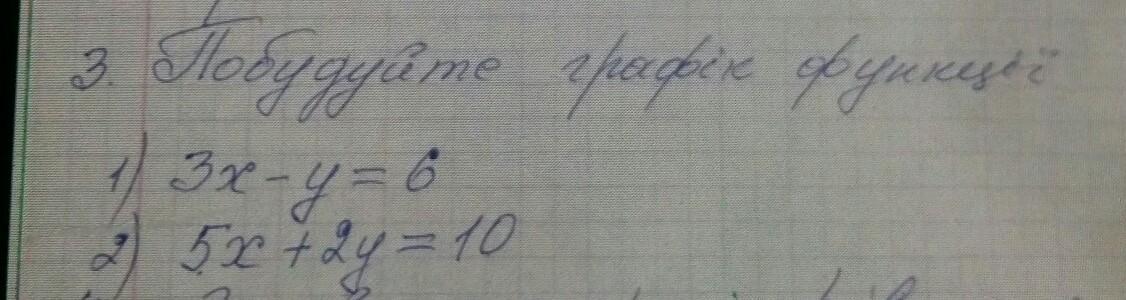 3. Побудуйте графік функції
1) 3x - y = 6
2) 5x + 2y = 10